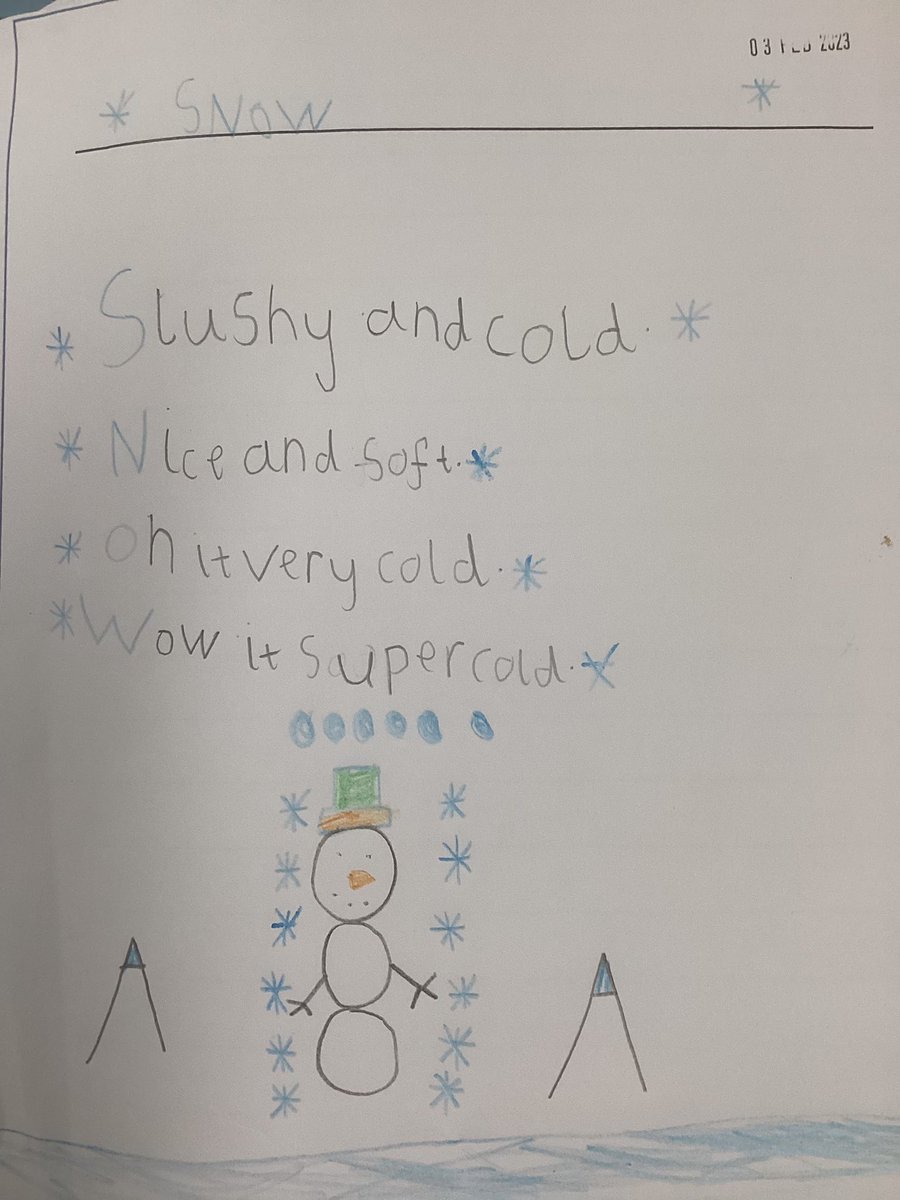 03 FEB 2023
SNOW
Slushy and cold.
Nice and soft.
Oh it very cold.
Wow it super cold.